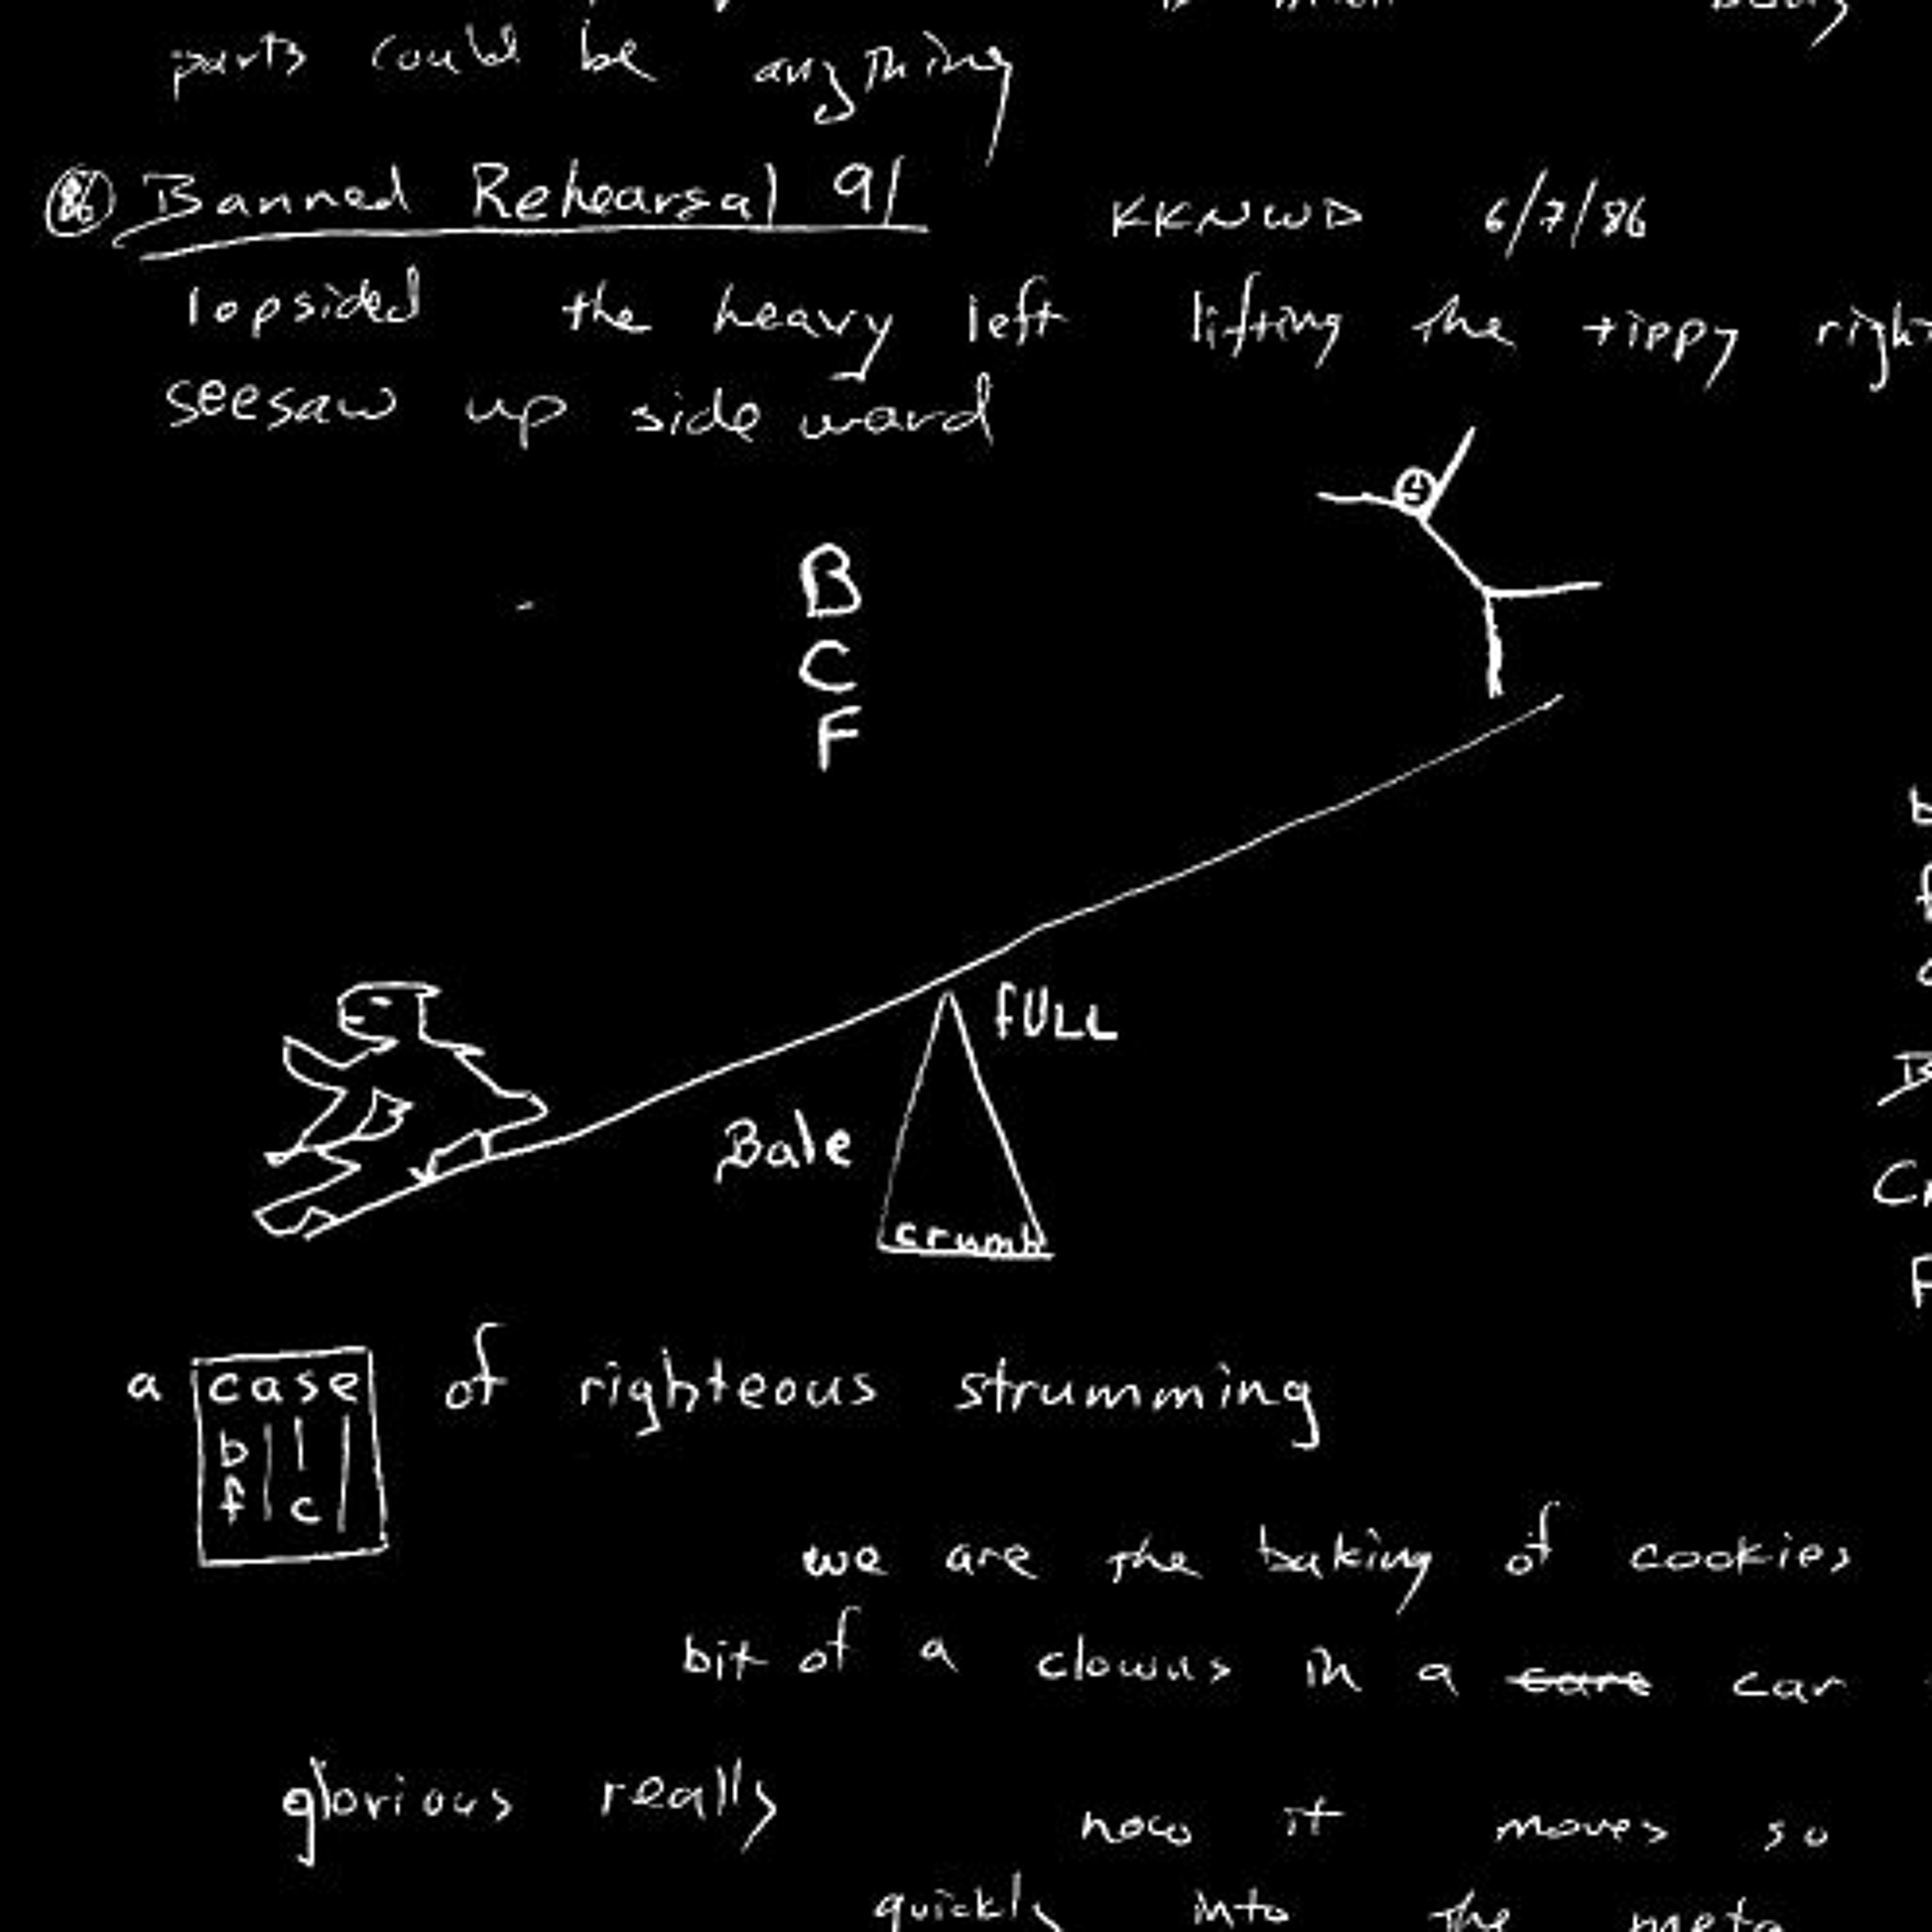 parts could be anything
86 Banned Rehearsal 91 KKNWD 6/7/86
lopsided the heavy left lifting the tippy right
seesaw up side ward
B
C
F
fULL
Bale
crumb
a case of righteous strumming
b
f c
we are the baking of cookies
bit of a clowns in a care car
glorious really now it moves so
quickly into the